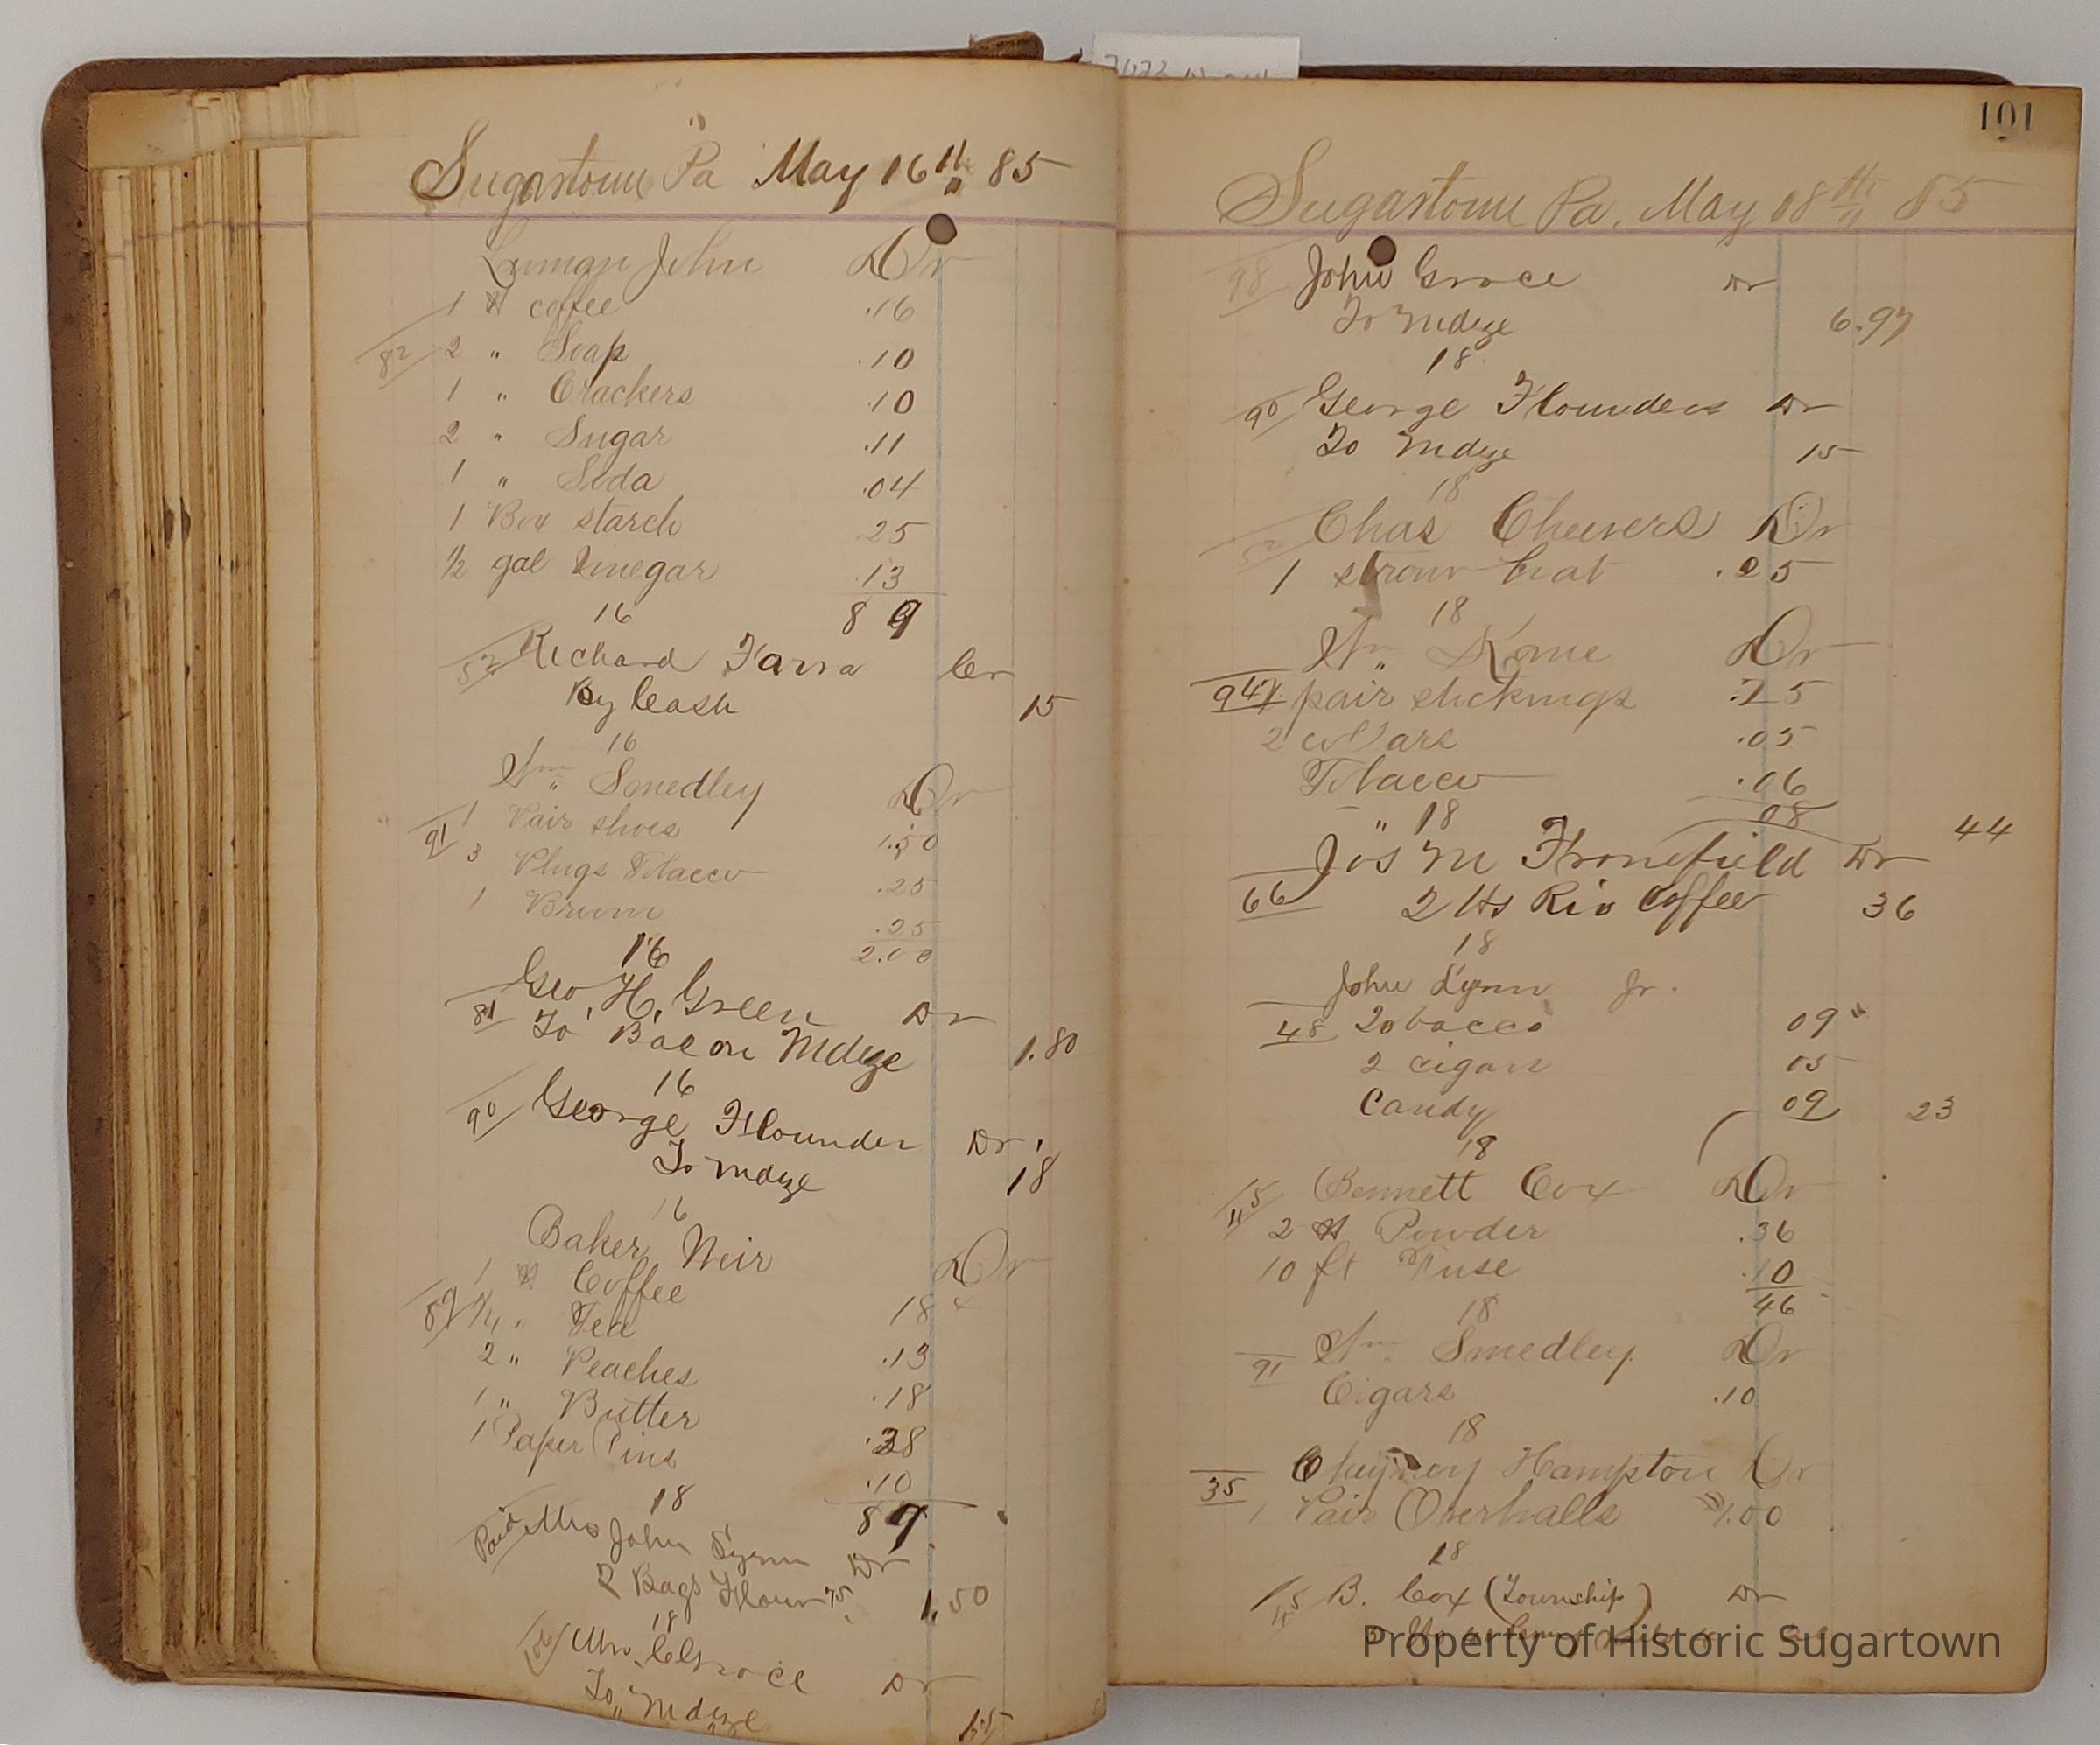 Sugartown Pa May 16th 85
Lyman John Dr
1 # coffee .16
82 2 " Soap .10
1 " Crackers .10
2 " Sugar .11
1 " Soda .04
1 Box starch 25
1/2 gal Vinegar .13
16 89
52 Richard Farra Cr
By Cash 15
16
Wm Smedley Dr
91 1 Pair shoes 1.50
3 Plugs Tobacco .25
1 Broom .25
16 2.00
Geo. H. Green Dr
81 To Bacon Mdze 1.80
16
90 George Flounder Dr
To mdze 18
16
Baker Weir Dr
1 # Coffee 18
89 1/4 " Tea .13
2 " Peaches .18
1 " Butter .28
1 Paper Pins .10
18 89
Paid Mrs John Lynn Dr
2 Bags Flour 75 1.50
18
Dr
To mdze
101
Sugartown Pa. May 18th 85
98 John Grace Dr
To mdze 6.97
18
90 George Flounders Dr
To mdze 15
18
52 Chas Cheevers Dr
1 straw hat .25
18
Wm Kane Dr
94 1 pair stockings .25
2 collars .05
Tobacco .06
18 08 44
Jos M Fronefield Dr
66 2 lbs Rio Coffee 36
18
John Lynn Jr.
48 Tobacco 09
2 cigars 05
Candy 09 23
18
45 Bennett Cox Dr
2 # Powder .36
10 ft Fuse .10
18 46
91 Wm Smedley Dr
Cigars .10
18
Cheyney Hampton Dr
35 1 Pair Overhalls 1.00
18
45 B. Cox (Township) Dr
Property of Historic Sugartown